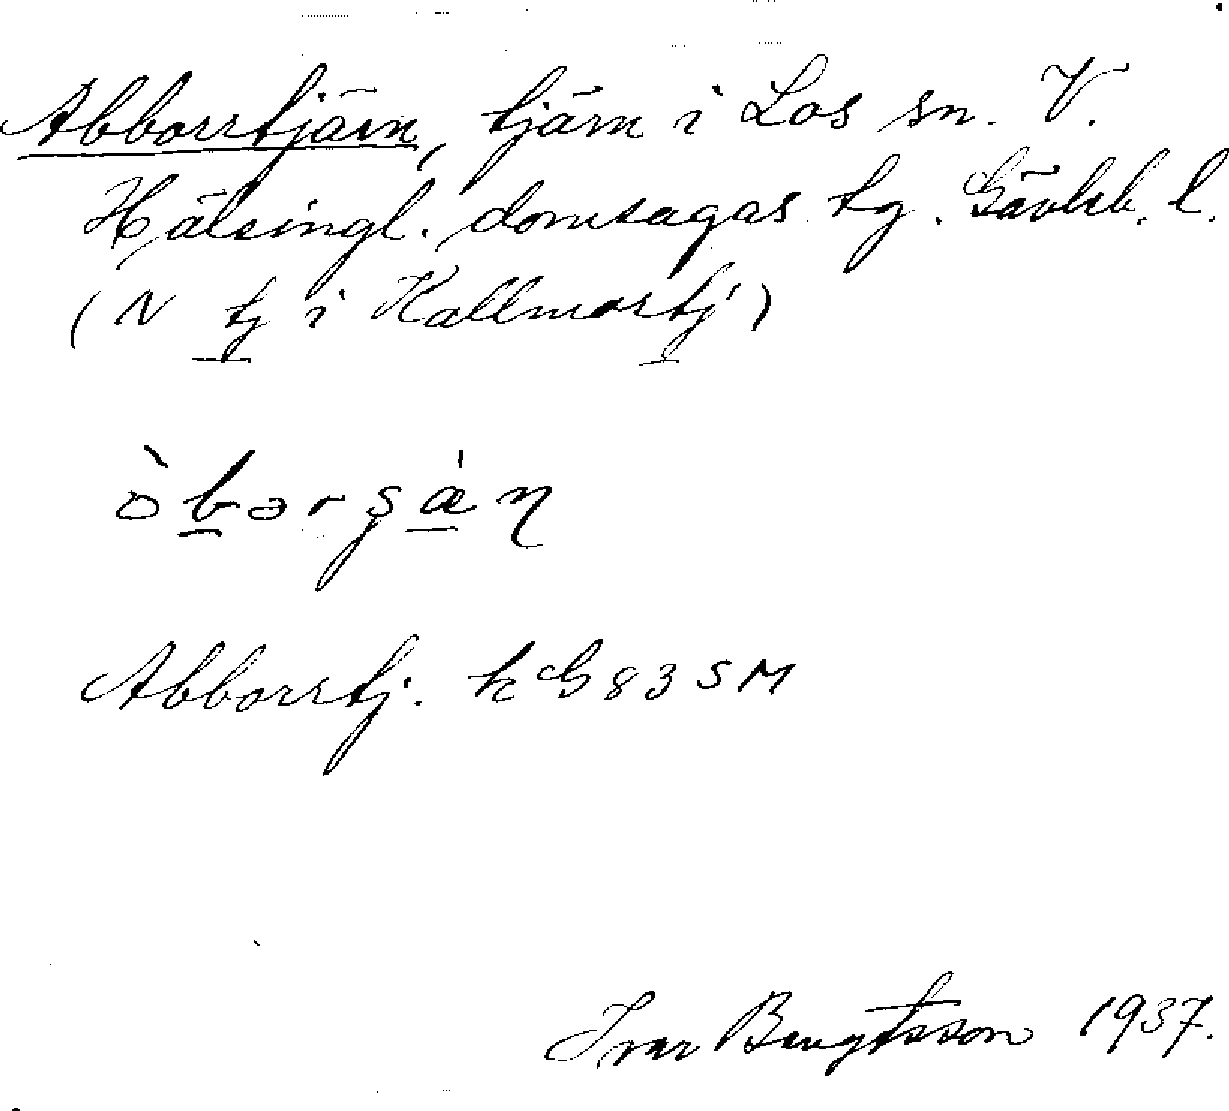 Abborrtjärn, tjärn i Los sn. V.
Hälsingl. domsagas tg. Gävleb. l.
(N tj i Kallmorstj)
òbərşæ̀ɳ
Abborrtj. kG 83 SM
Ivar Bengtsson 1937.